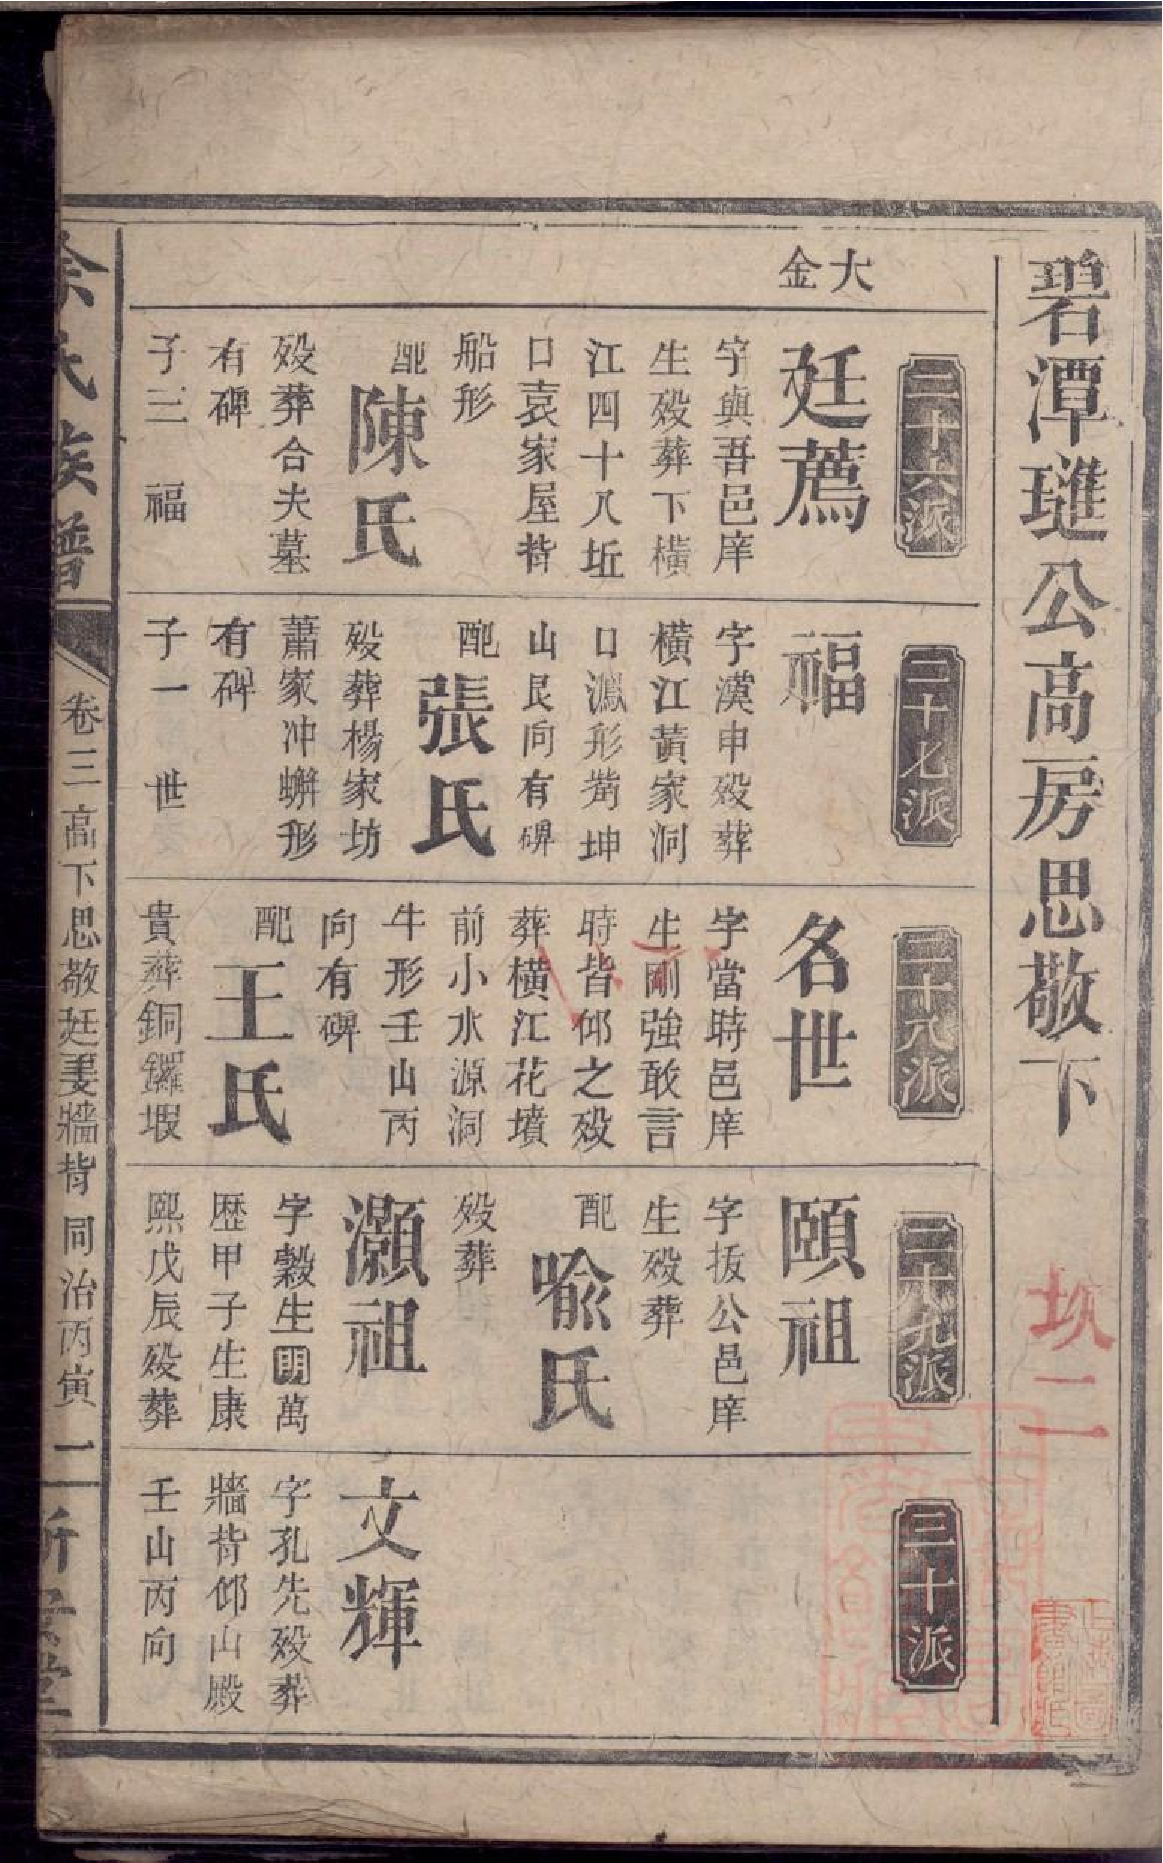 碧潭璡公高房思敬下
坎二
大
金
二十六派
廷薦
字與吾邑庠
生殁葬下橫
江四十八坵
口袁家屋背
船形
配
陳氏
殁葬合夫墓
有碑
子三 福
二十七派
福
字漢申殁葬
橫江黃家洞
口 形 坤
山艮向有碑
配
張氏
殁葬楊家坊
蕭家冲蠏形
有碑
子一 世
二十八派
名世
字當時邑庠
生剛強敢言
時皆仰之殁
葬橫江花墳
前小水源洞
牛形壬山丙
向有碑
配
王氏
貴葬銅鑼塅
二十九派
頤祖
字拔公邑庠
生殁葬
配
喻氏
殁葬
灝祖
字穀生明萬
歷甲子生康
熙戊辰殁葬
三十派
文輝
字孔先殁葬
牆背仰山殿
壬山丙向
余氏族譜
卷三 高下思敬廷 牆背 同治丙寅 二